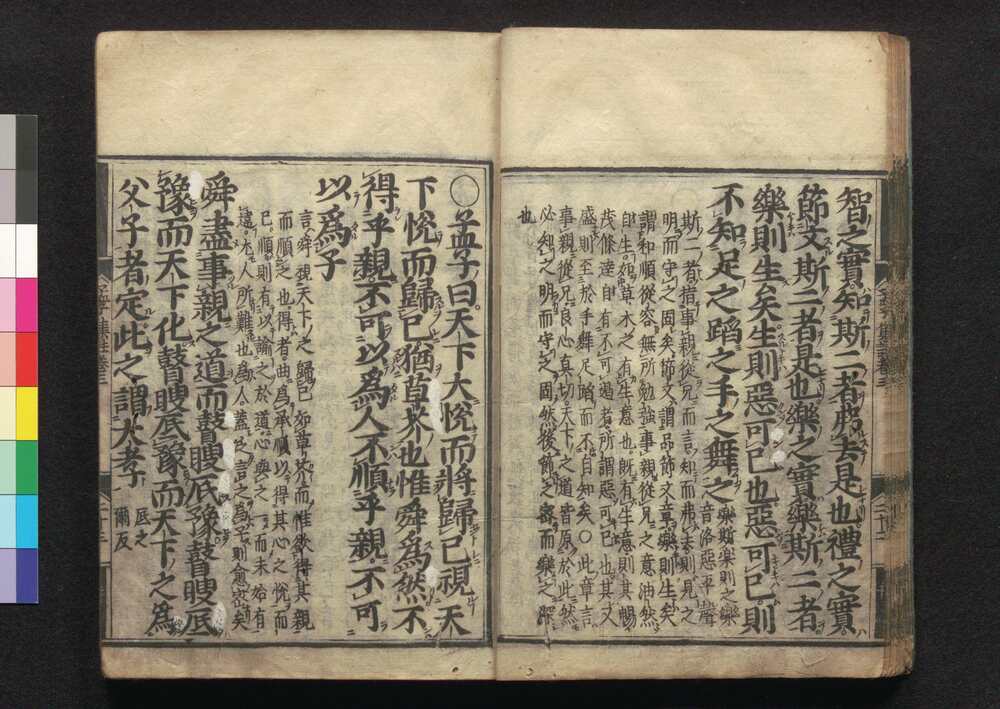 智之實知斯二者弗去是也禮之實
節文斯二者是也樂之實樂斯二者
樂則生矣生則惡可已也惡可已則
不知足之蹈之手之舞之
樂斯樂則之樂
音洛惡平聲
斯二者指事親從兄而言知而弗去則見之
明而守之固矣節文謂品節文章樂則生矣
謂和順從容無所勉強事親從兄之意油然
自生如草木之有生意也既有生意則其暢
茂條達自有不可遏者所謂惡可已也其又
盛則至於手舞足蹈而不自知矣○此章言
事親從兄良心真切天下之道皆原於此然
必知之明而守之固然後節之密而樂之深
也
○孟子曰天下大悅而將歸己視天
下悅而歸己猶草芥也惟舜爲然不
得乎親不可以爲人不順乎親不可
以爲子
言舜視天下之歸己如草芥而惟欲得其親
而順之也得者曲爲承順以得其心之悅而
已順則有以諭之於道心與之一而未始有
違尤人所難也爲人蓋泛言之爲子則愈密矣
舜盡事親之道而瞽瞍厎豫瞽瞍厎
豫而天下化瞽瞍厎豫而天下之爲
父子者定此之謂大孝
厎之
爾反